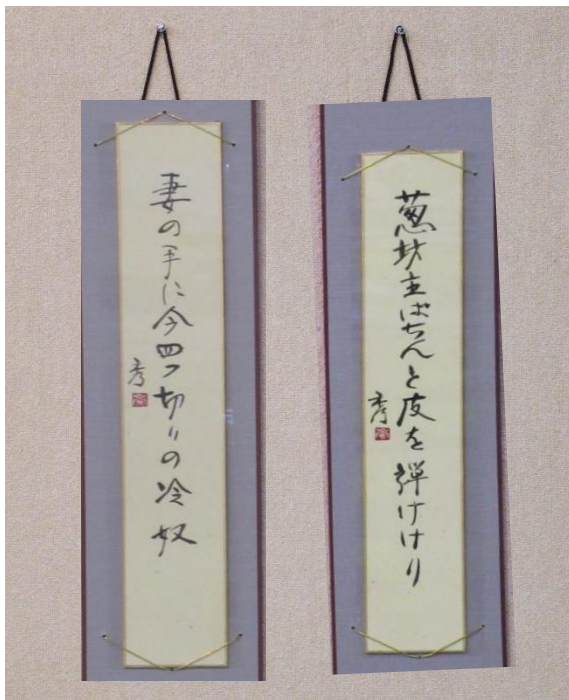 葱坊主ぱちんと皮を弾けけり
秀
妻の手に今四つ切りの冷奴
秀